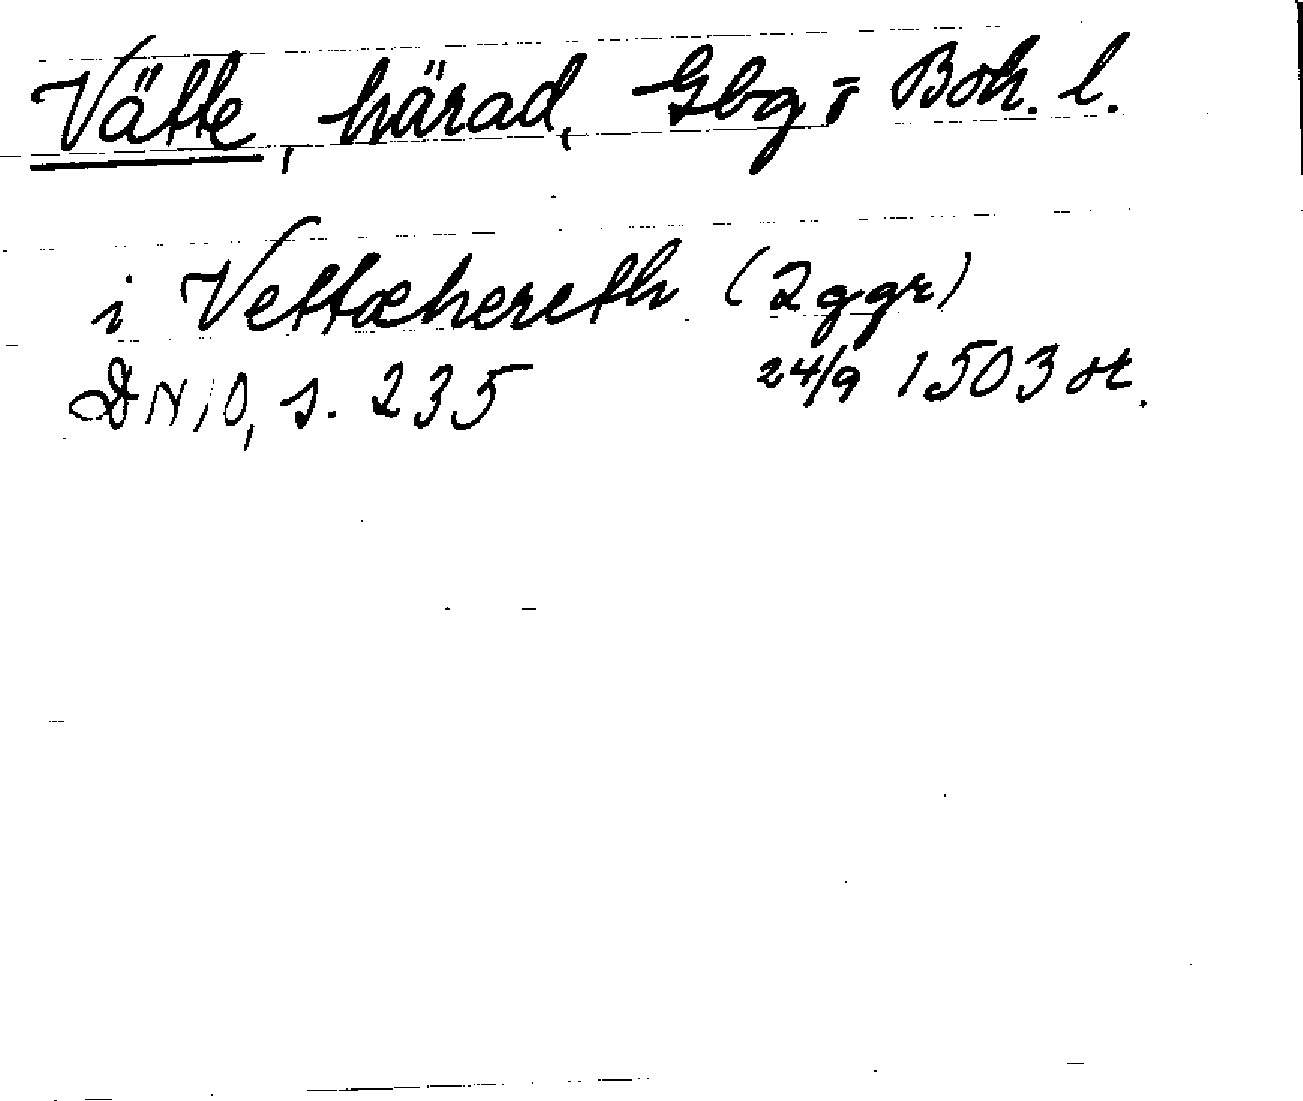 Vätte, härad, Gbg o Boh. l.
i Vettæhereth (2 ggr)
DN 10, s. 235 24/9 1503 or.